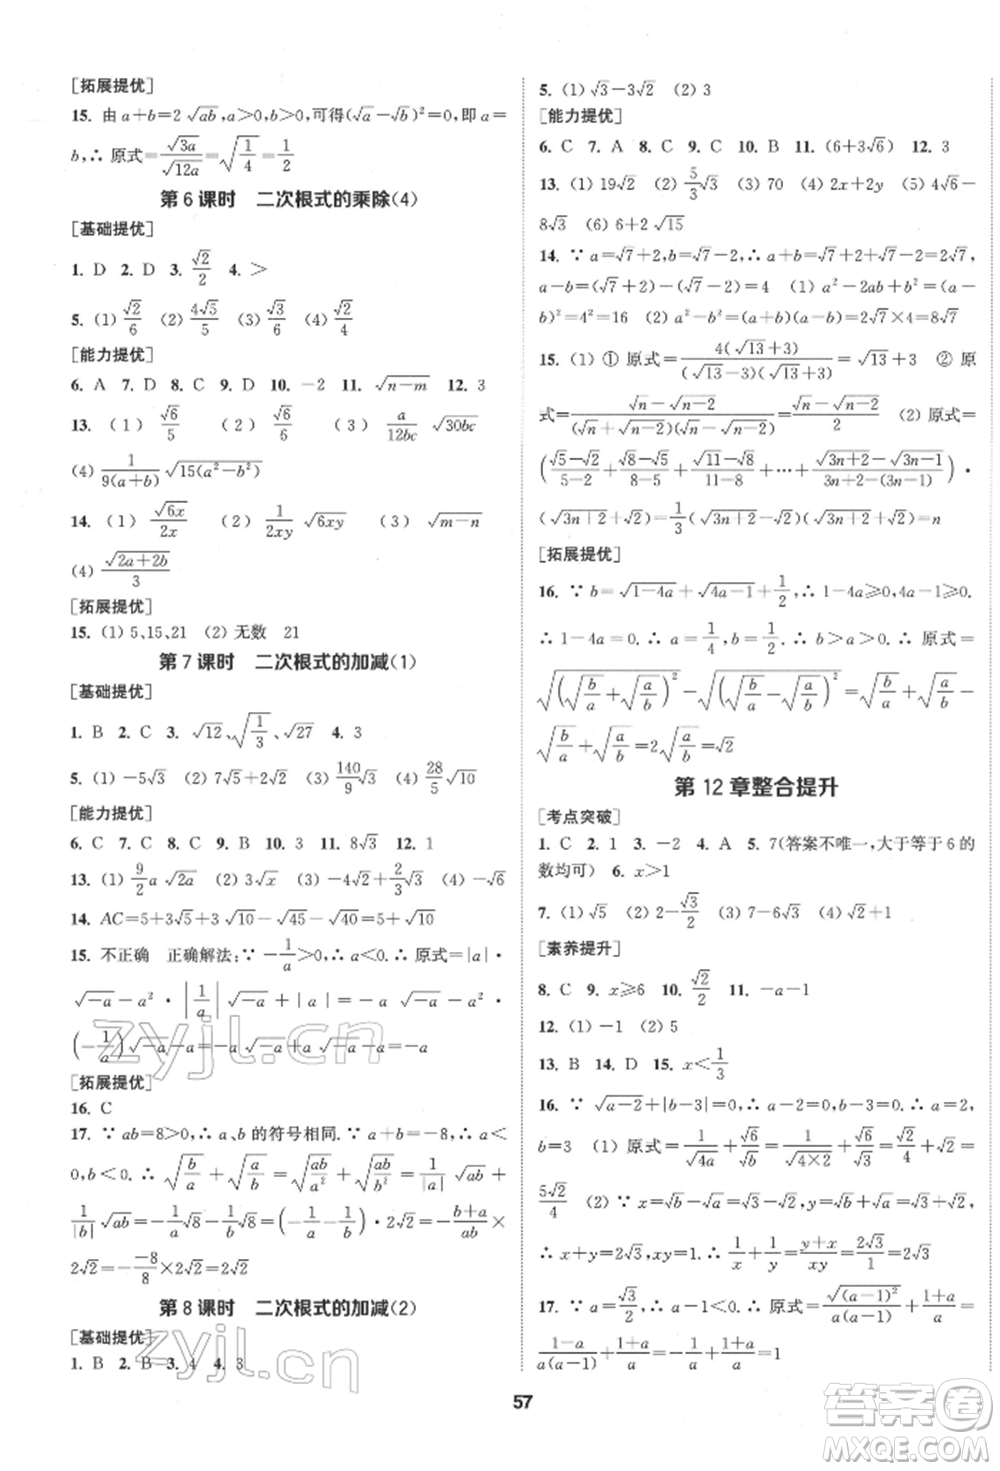 [拓展提优]
15. 由 a+b=2√(ab),a>0,b>0,可得(√a-√b)²=0,即 a=
b,∴ 原式=√(3a)/√(12a)=√(1/4)=1/2
第 6 课时 二次根式的乘除(4)
[基础提优]
1. D 2. D 3. √2/2 4. >
5. (1) √2/6 (2) 4√5/5 (3) √3/6 (4) √2/4
[能力提优]
6. A 7. D 8. C 9. D 10. -2 11. √(n-m) 12. 3
13. (1) √6/5 (2) √6/2 (3) a/(12bc) √(30bc)
(4) 1/(9(a+b)) √(15(a²-b²))
14. (1) √(6x)/(2x) (2) 1/(2xy) √(6xy) (3) √(m-n)
(4) √(2a+2b)/3
[拓展提优]
15. (1) 5,15,21 (2) 无数 21
第 7 课时 二次根式的加减(1)
[基础提优]
1. B 2. C 3. √12、√(1/3)、√27 4. 3
5. (1) -5√3 (2) 7√5+2√2 (3) 140/9 √3 (4) 28/5 √10
[能力提优]
6. C 7. C 8. B 9. B 10. 3 11. 8√3 12. 1
13. (1) 9/2 a√(2a) (2) 3√x (3) -4√2+8√3/3 (4) -√6
14. AC=5+3√5+3√10-√45-√40=5+√10
15. 不正确 正确解法:∵ -1/a>0,∴ a<0,∴ 原式=|a|
√(-a)-a²·|1/a|√(-a)+|a|=-a√(-a)-a²·
(-1/a)√(-a)-a=-a√(-a)+a√(-a)-a=-a
[拓展提优]
16. C
17. ∵ ab=8>0,∴ a、b 的符号相同.∵ a+b=-8,∴ a<
0,b<0.∴ √(b/a)+√(a/b)=√(ab/a²)+√(ab/b²)=1/|a|√(ab)+
1/|b|√(ab)=-1/a√8-1/b√8=(-1/a-1/b)·2√2=-(b+a)/(ab)×
2√2=-(-8)/8×2√2=2√2
第 8 课时 二次根式的加减(2)
[基础提优]
1. B 2. B 3. 4 4. 3
5. (1) √3-3√2 (2) 3
[能力提优]
6. C 7. A 8. C 9. C 10. A 11. (6+3√6) 12. 3
13. (1) 19√2 (2) 5/3 √3 (3) 70 (4) 2x+2y (5) 4√6-
8√3 (6) 6+2√15
14. ∵ a=√7+2,b=√7-2,∴ a+b=√7+2+√7-2=2√7,
a-b=(√7+2)-(√7-2)=4 (1) a²-2ab+b²=(a-
b)²=4²=16 (2) a²-b²=(a+b)(a-b)=2√7×4=8√7
15. (1) ① 原式=4(√13+3)/((√13-3)(√13+3))=√13+3 ② 原
式=(√n-√(n-2))/((√n+√(n-2))(√n-√(n-2)))=(√n-√(n-2))/2 (2) 原式=
((√5-√2)/(5-2)+(√8-√5)/(8-5)+(√11-√8)/(11-8)+…+(√(3n+2)-√(3n-1))/(3n+2-(3n-1)))·
(√(3n+2)+√2)=1/3(√(3n+2)-√2)(√(3n+2)+√2)=n
[拓展提优]
16. ∵ b=√(1-4a)+√(4a-1)+1/2,∴ 1-4a≥0,4a-1≥0.
∴ 1-4a=0.∴ a=1/4,b=1/2.∴ b>a>0.∴ 原式=
√((√(b/a)+√(a/b))²)-√((√(b/a)-√(a/b))²)=√(b/a)+√(a/b)-
√(b/a)+√(a/b)=2√(a/b)=√2
第 12 章整合提升
[考点突破]
1. C 2. 1 3. -2 4. A 5. 7(答案不唯一,大于等于 6 的
数均可) 6. x>1
7. (1) √5 (2) 2-√3/2 (3) 7-6√3 (4) √2+1
[素养提升]
8. C 9. x≥6 10. √2/2 11. -a-1
12. (1) -1 (2) 5
13. B 14. D 15. x<1/3
16. ∵ √(a-2)+|b-3|=0,∴ a-2=0,b-3=0.∴ a=2,
b=3 (1) 原式=1/√(4a)+√6/√b=1/√(4×2)+√6/√3=√2/4+√2=
5√2/4 (2) ∵ x=√b-√a=√3-√2,y=√b+√a=√3+√2,
∴ x+y=2√3,xy=1.∴ 1/x+1/y=(y+x)/(xy)=2√3/1=2√3
17. ∵ a=√3/2,∴ 0<a<1.∴ 原式=√((a-1)²)/(a(a-1))+(1+a)/a=
(1-a)/(a(a-1))+(1+a)/a=-1/a+(1+a)/a=1
57
zyjl.cn
zyjl.cn
答案圈
MXQE.COM